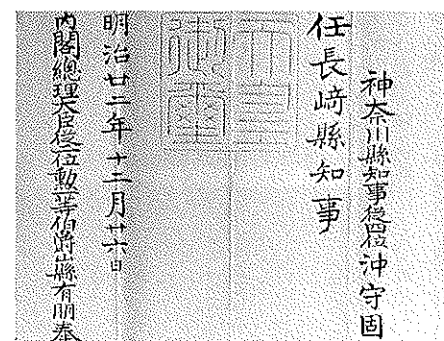 神奈川縣知事從四位沖守固
任長崎縣知事
天皇
御璽
明治廿二年十二月廿六日
内閣總理大臣從二位勲一等伯爵山縣有朋奉